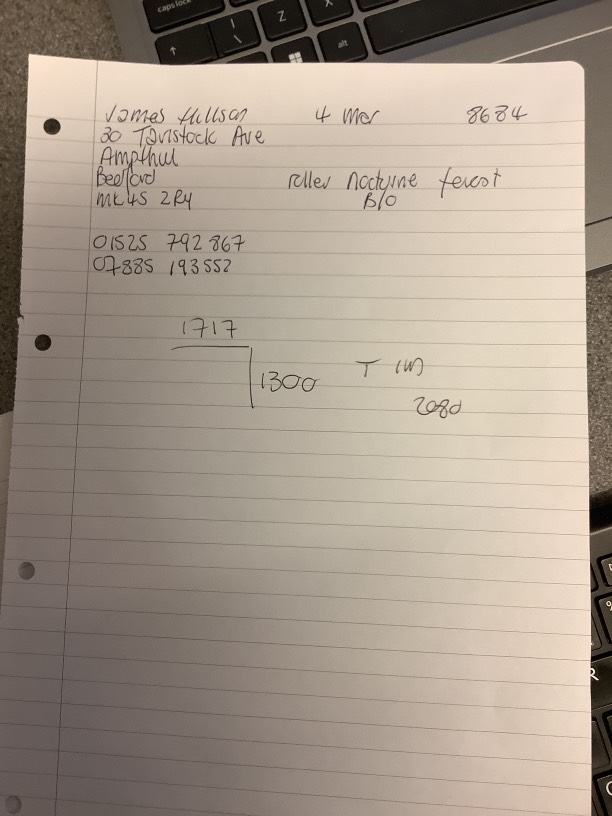 James Hillson 4 Mar 8684
30 Tavistock Ave
Ampthill
Bedford roller Nocturne forest
MK45 2RY B/O
01525 792 867
07885 193552
1717
1300 T (W)
2080